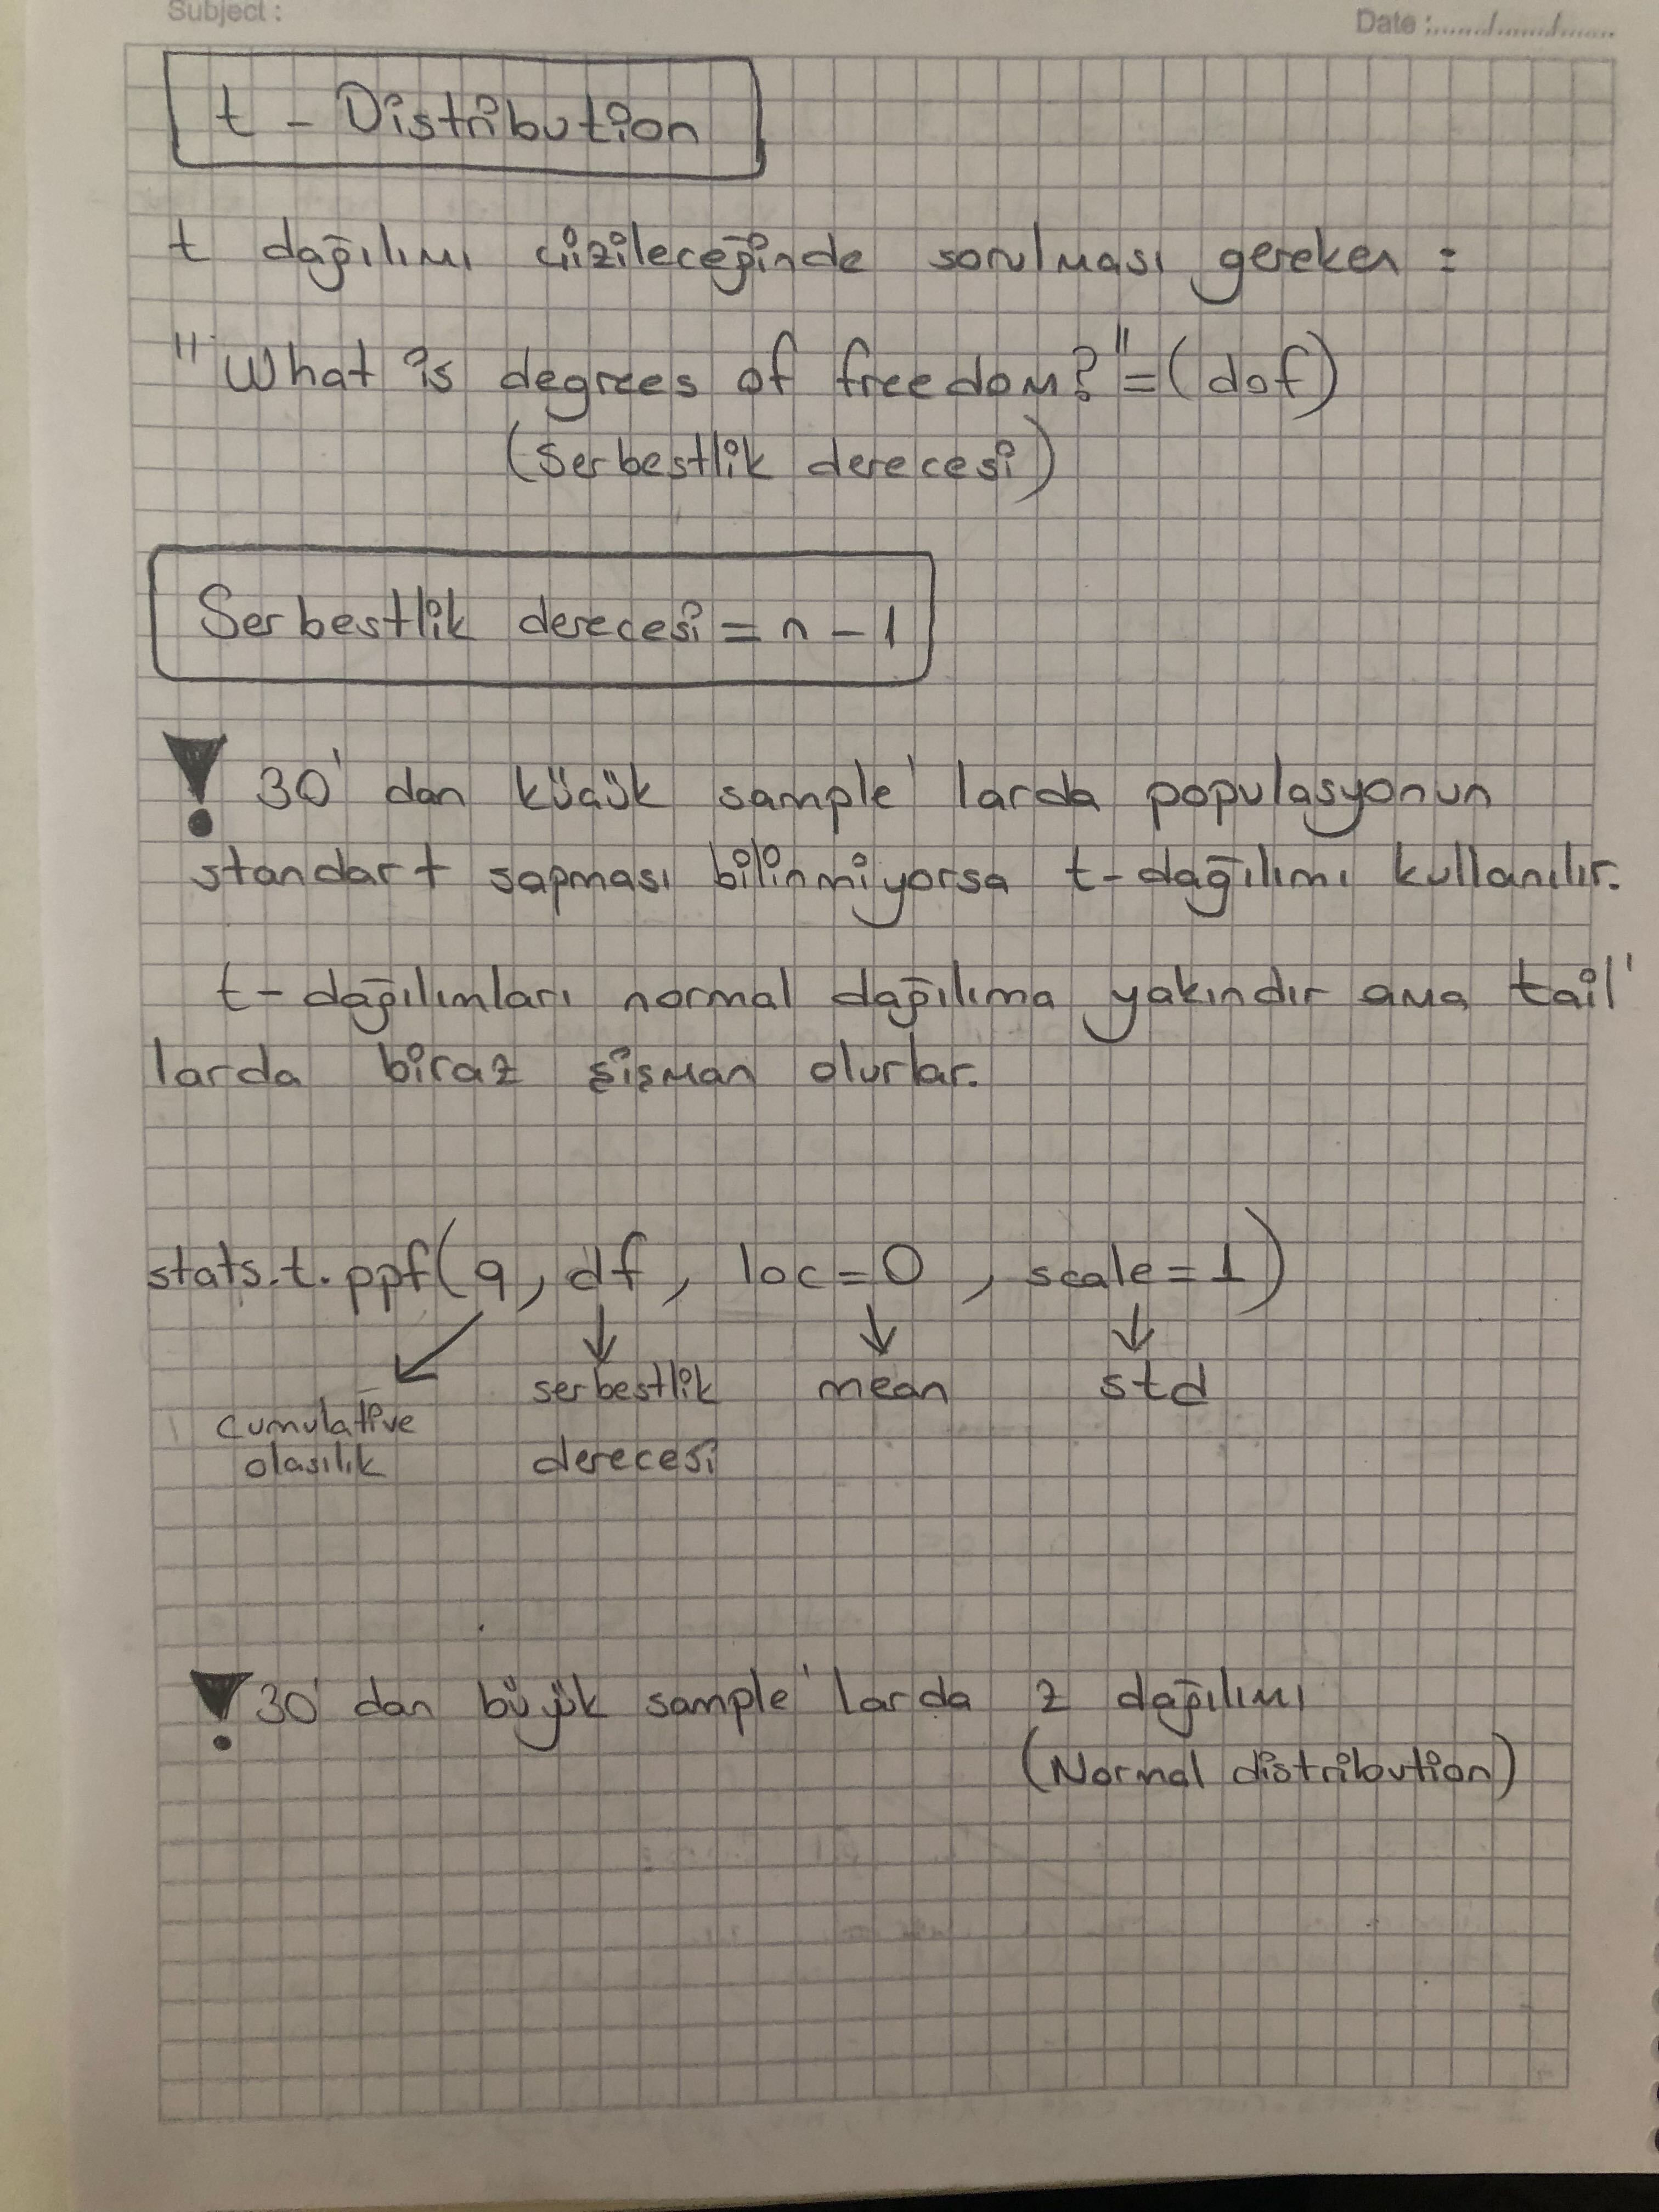 Subject :
Date :....../....../......
t - Distribution
t dağılımı çizileceğinde sorulması gereken :
"What is degrees of freedom?" = (dof)
(Serbestlik derecesi)
Serbestlik derecesi = n - 1
! 30' dan küçük sample' larda populasyonun
standart sapması bilinmiyorsa t-dağılımı kullanılır.
t-dağılımları normal dağılıma yakındır ama tail'
larda biraz şişman olurlar.
stats.t.ppf(q, df, loc=0, scale=1)
serbestlik mean std
cumulative
olasılık derecesi
! 30' dan büyük sample' larda z dağılımı
(Normal distribution)